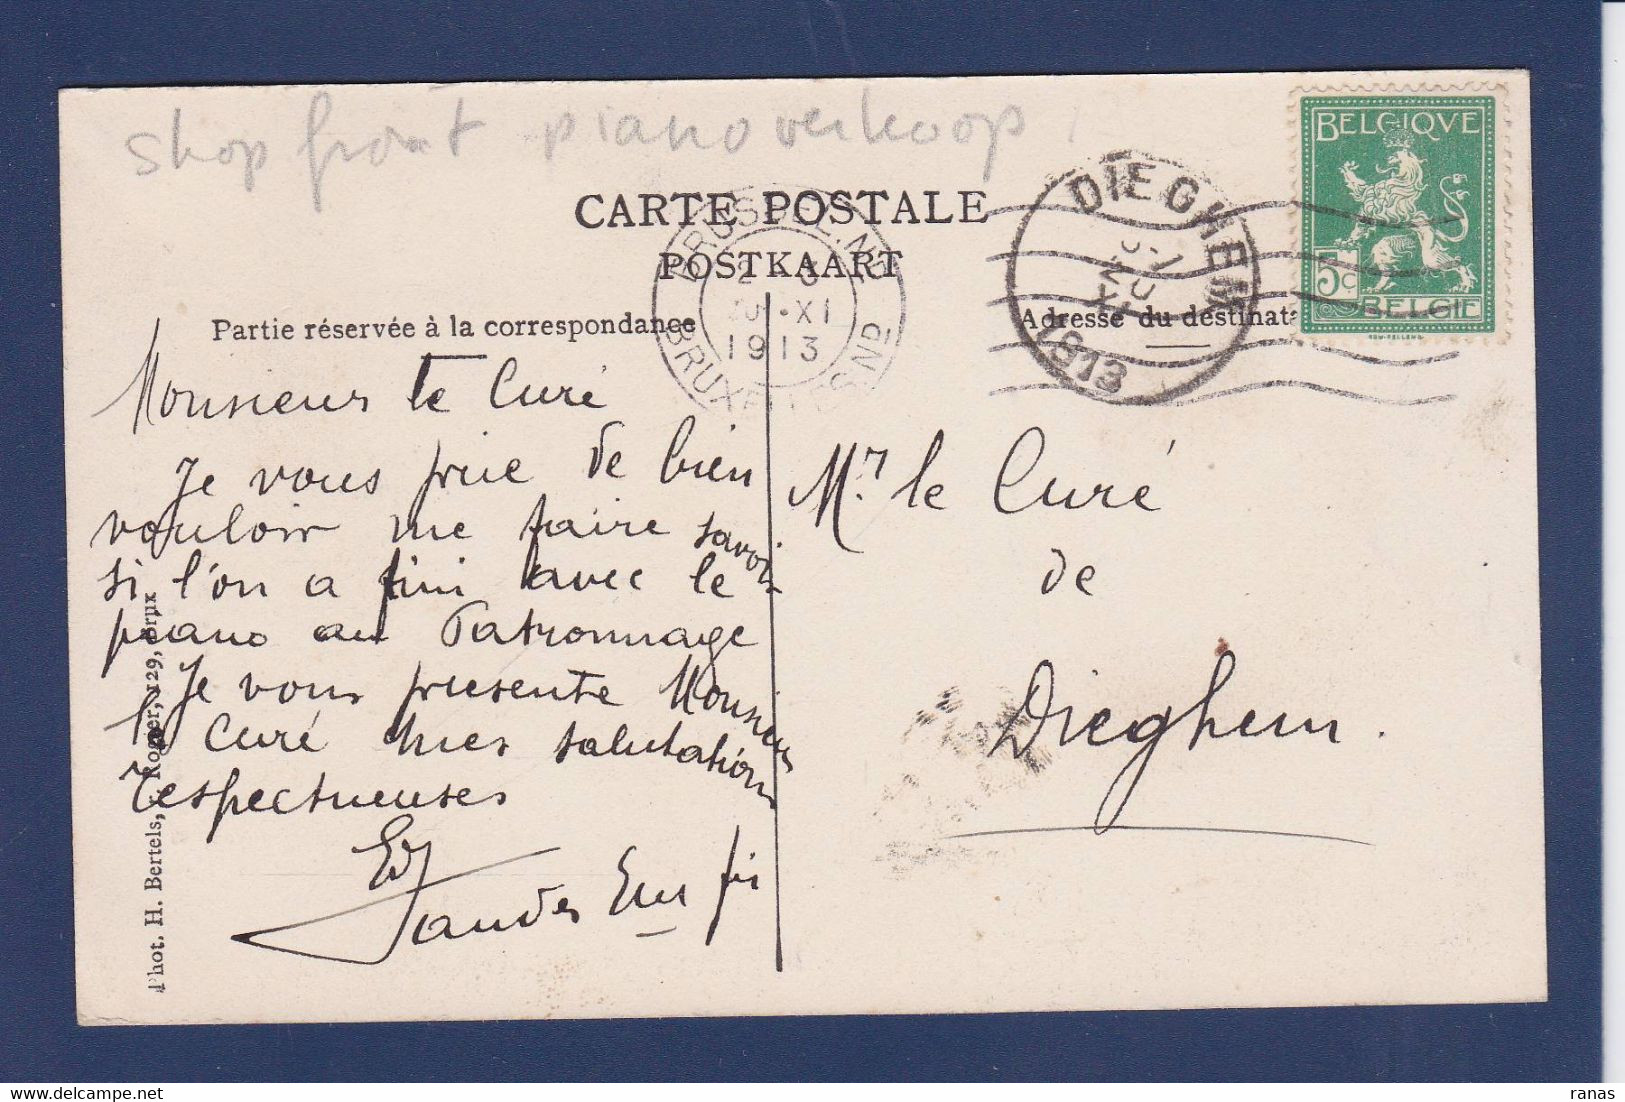 shop front pianoverkoop
CARTE POSTALE
POSTKAART
Partie réservée à la correspondance
Adresse du destinat
BELGIQVE
5c
BELGIE
DIEGHEM
1913
XI
1913
Monsieur le Curé
Je vous prie de bien
vouloir me faire savoir
si l'on a fini avec le
piano au Patronnage
Je vous presente Monsieur
le Curé mes salutations
respectueuses
Mr. le Curé
de
Dieghem.
Phot. H. Bertels, r. Rogier, 129, Brux
ranas